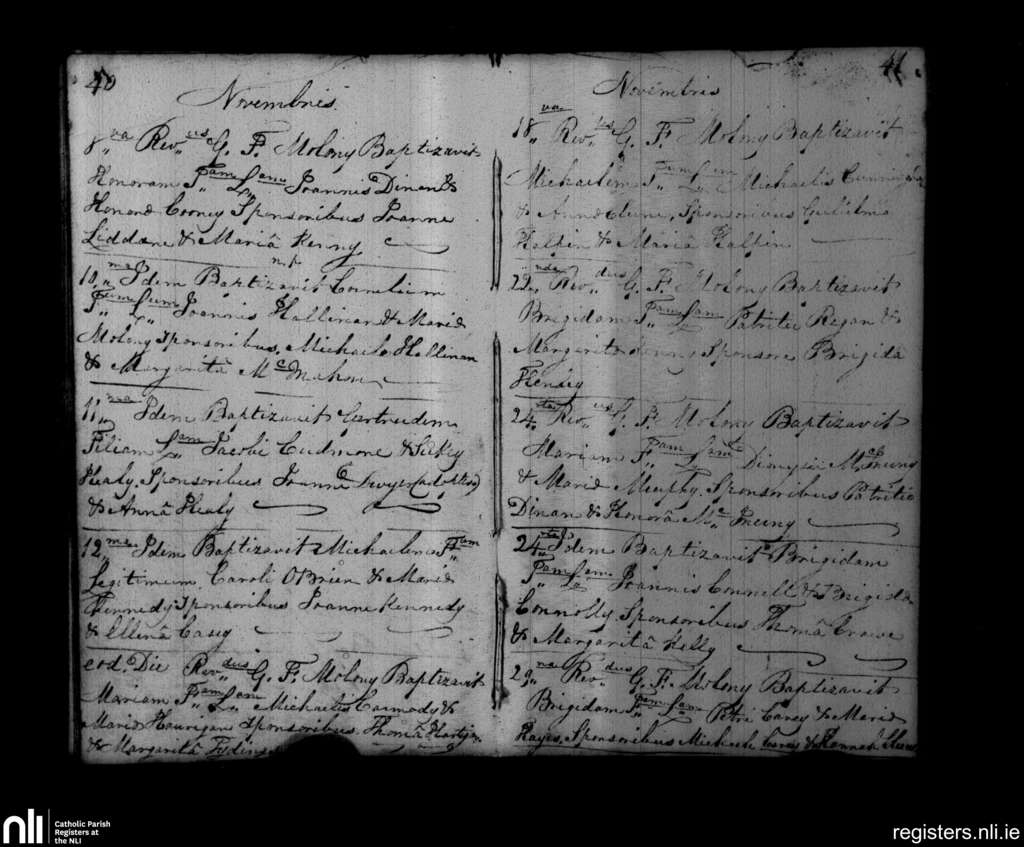 40
Novembris
8va Revus G. F. Molony Baptizavit
Honoram Fam Lam Joannis Dinan &
Honora Cooney Sponsoribus Joanne
Liddane & Mariâ Kenny
n.p.
10ma Idem Baptizavit Cornelium
Fum Lum Joannis Hallinan & Maria
Molony Sponsoribus Michaele Hallinan
& Margaritâ McMahon
11ma Idem Baptizavit Gertrudem
Filiam Lam Jacobi Cudmore &
Healy. Sponsoribus Joanne Dwyer
& Annâ Healy
12ma Idem Baptizavit Michaelem
Legitimum Caroli O'Brien & Maria
Kennedy Sponsoribus Joanne Kennedy
& Ellenâ Casey
eod. Die Revdus G. F. Molony Baptizavit
Mariam Fam Lam Michaelis Carmody &
Maria Hourigan Sponsoribus Thomâ
& Margaritâ
41
Novembris
18va Revdus G. F. Molony Baptizavit
Michaelem Michaelis
& Anna Sponsoribus Gulielmo
Halpin & Mariâ Halpin
22nda Revdus G. F. Molony Baptizavit
Brigidam Fam Lam Patritii Regan &
Margarita Sponsore Brigidâ
24ta Revus G. F. Molony Baptizavit
Mariam Fam Lam Dionysii
& Maria Murphy. Sponsoribus Patritio
Dinan & Honorâ Mc
24ta Idem Baptizavit Brigidam
Fam Lam Joannis Connell & Brigida
Connolly Sponsoribus Thomâ Crowe
& Margaritâ Kelly
29na Revdus G. F. Molony Baptizavit
Brigidam Fam Lam Petri Carey & Maria
Hayes. Sponsoribus Michaele Carey &
nli
Catholic Parish
Registers at
the NLI
registers.nli.ie